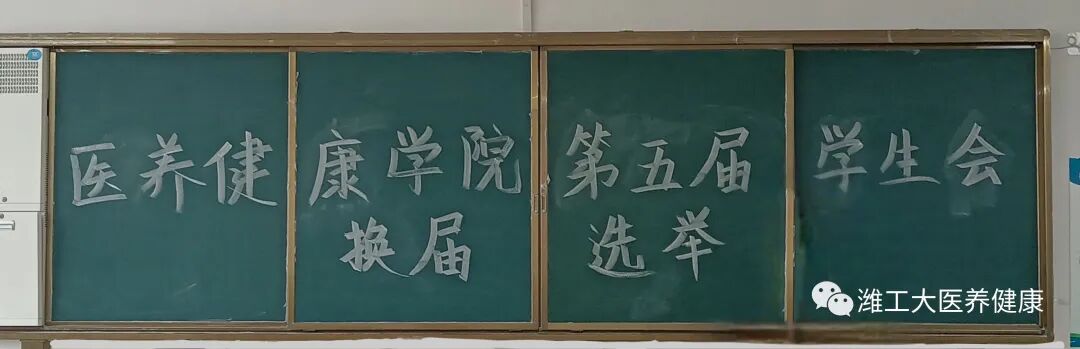 医养健康学院第五届学生会
换届选举
潍工大医养健康